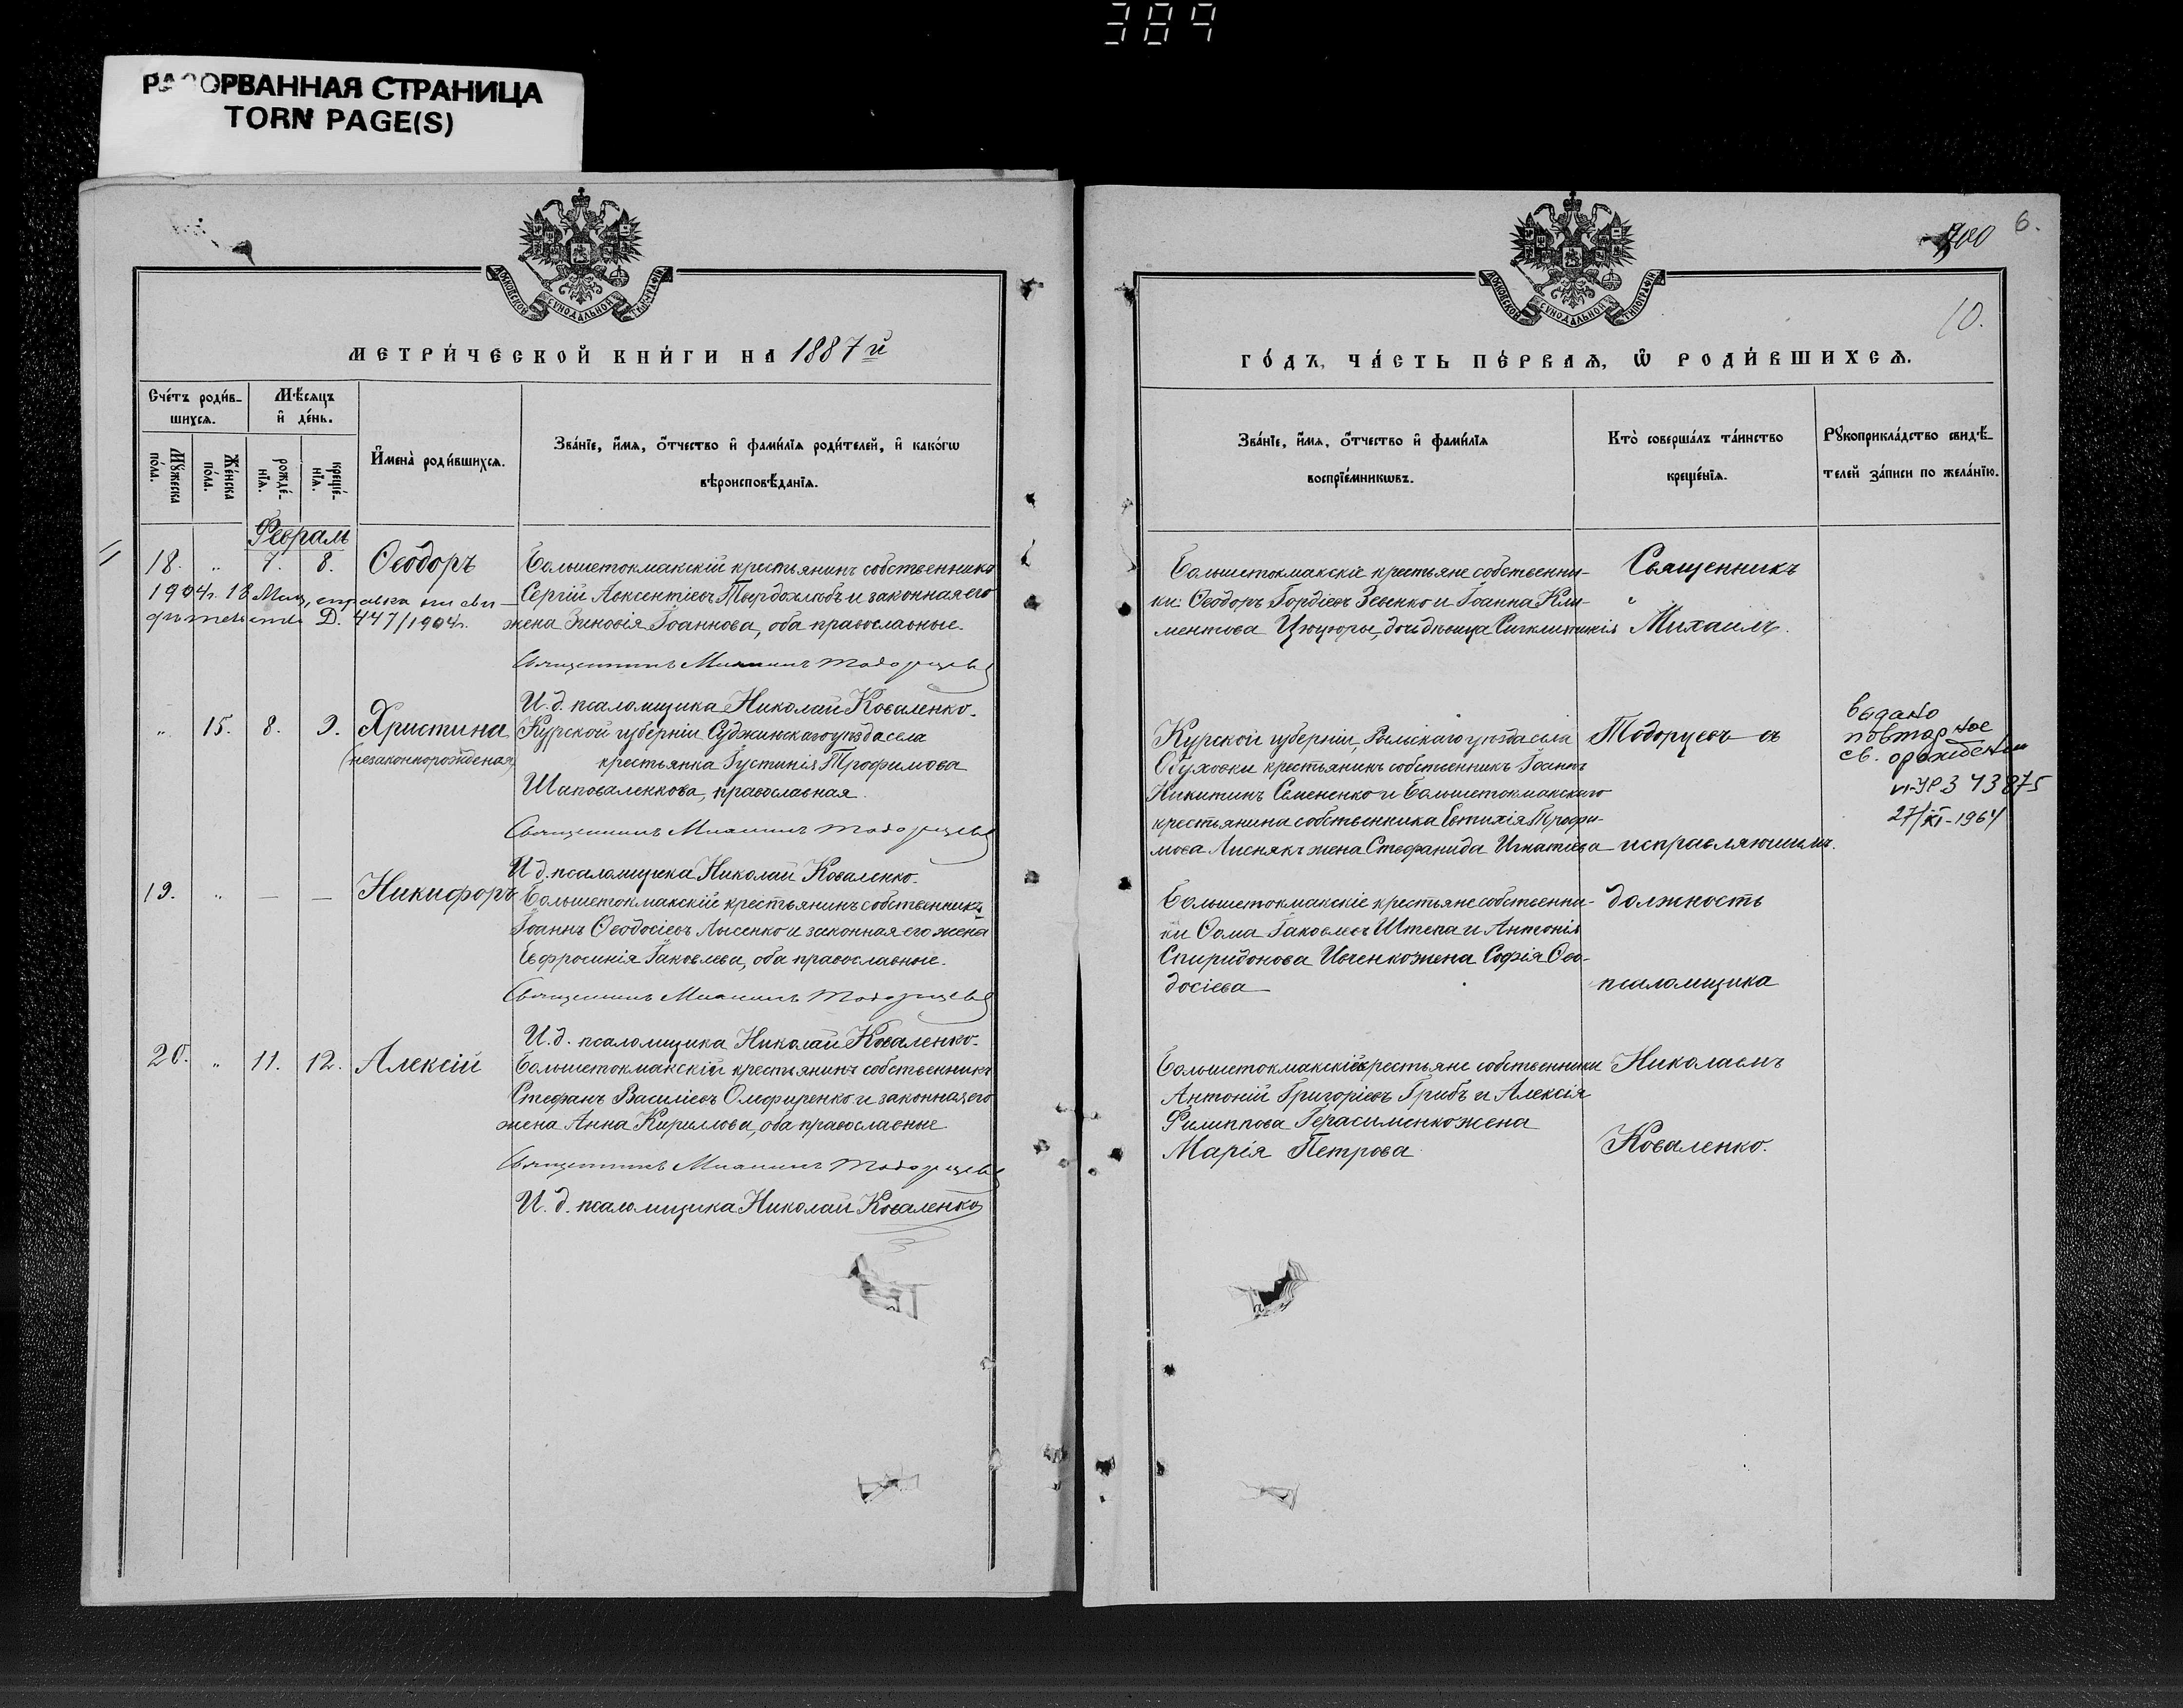 389
РАЗОРВАННАЯ СТРАНИЦА
TORN PAGE(S)
МОСКОВСКОЙ СѴНОДАЛЬНОЙ ТИПОГРАФІИ
МЕТРИ́ЧЕСКОЙ КНИ́ГИ НА 1887й
Сче́тъ роди́в-
шихсѧ.
Мѣ́сѧцъ
и҆ де́нь.
Мꙋ́жеска по́ла.
Же́нска по́ла.
рожде́-нїѧ.
креще́-нїѧ.
И҆мена̀ роди́вшихсѧ.
Зва́нїе, и҆́мѧ, ѻ҆́тчество и҆ фамѝлїѧ роди́телей, и҆ како́гѡ
вѣроисповѣ́данїѧ.
Февраль
18. „ 7. 8. Ѳеодоръ
1904г. 18 Мая, справка
Д. 447/1904г.
Большетокмакскій крестьянинъ собственникъ
Сергій Авксентіевъ Твердохлѣбъ и законная его
жена Зиновія Іоаннова, оба православные.
Священникъ Михаилъ Тодорцевъ
И. д. псаломщика Николай Коваленко.
„ 15. 8. 9. Христина
(незаконнорожденая)
Курской губерніи Суджинскаго уѣзда села
крестьянка Іустинія Трофимова
Шаповаленкова, православная.
Священникъ Михаилъ Тодорцевъ
И д. псаломщика Николай Коваленко.
19. „ — — Никифоръ
Большетокмакскій крестьянинъ собственникъ
Іоаннъ Ѳеодосіевъ Лысенко и законная его жена
Евфросинія Іаковлева, оба православные.
Священникъ Михаилъ Тодорцевъ
И. д. псаломщика Николай Коваленко.
20. „ 11. 12. Алексій
Большетокмакскій крестьянинъ собственникъ
Стефанъ Василіевъ Олефиренко и законная его
жена Анна Кириллова, оба православные
Священникъ Михаилъ Тодорцевъ
И. д. псаломщика Николай Коваленко
6.
700
10.
МОСКОВСКОЙ СѴНОДАЛЬНОЙ ТИПОГРАФІИ
ГО́ДЪ, ЧА́СТЬ ПЕ́РВАѦ, Ѡ҆ РОДИ́ВШИХСѦ.
Зва́нїе, и҆́мѧ, ѻ҆́тчество и҆ фамѝлїѧ
воспрїе́мникѡвъ.
Кто̀ соверша́лъ та́инство
креще́нїѧ.
Рꙋкоприкла́дство свидѣ́-
телей за́писи по жела́нїю.
Большетокмакскіе крестьяне собственни-
ки: Ѳеодоръ Гордіевъ Зевенко и Іоанна Кли-
ментова Цюцюры, дочь дѣвица Синклитикія
Священникъ
„
Михаилъ
Курской губерніи, Рыльскаго уѣзда села
Обуховки крестьянинъ собственникъ Іоаннъ
Никитинъ Семененко и Большетокмакскаго
крестьянина собственника Евтихія Трофи-
мова Лиснякъ жена Стефанида Игнатіева
Тодорцевъ съ
исправляющимъ
видано
повторное
св. о рождении
VI-УР 343875
27/XI-1964
Большетокмакскіе крестьяне собственни-
ки Ѳома Іаковлевъ Штепа и Антонія
Спиридонова Ивченко жена Софія Ѳео-
досіева
должность
псаломщика
Большетокмакскіе крестьяне собственники
Антоній Григоріевъ Грибъ и Алексія
Филиппова Герасименко жена
Марія Петрова
Николаемъ
Коваленко.